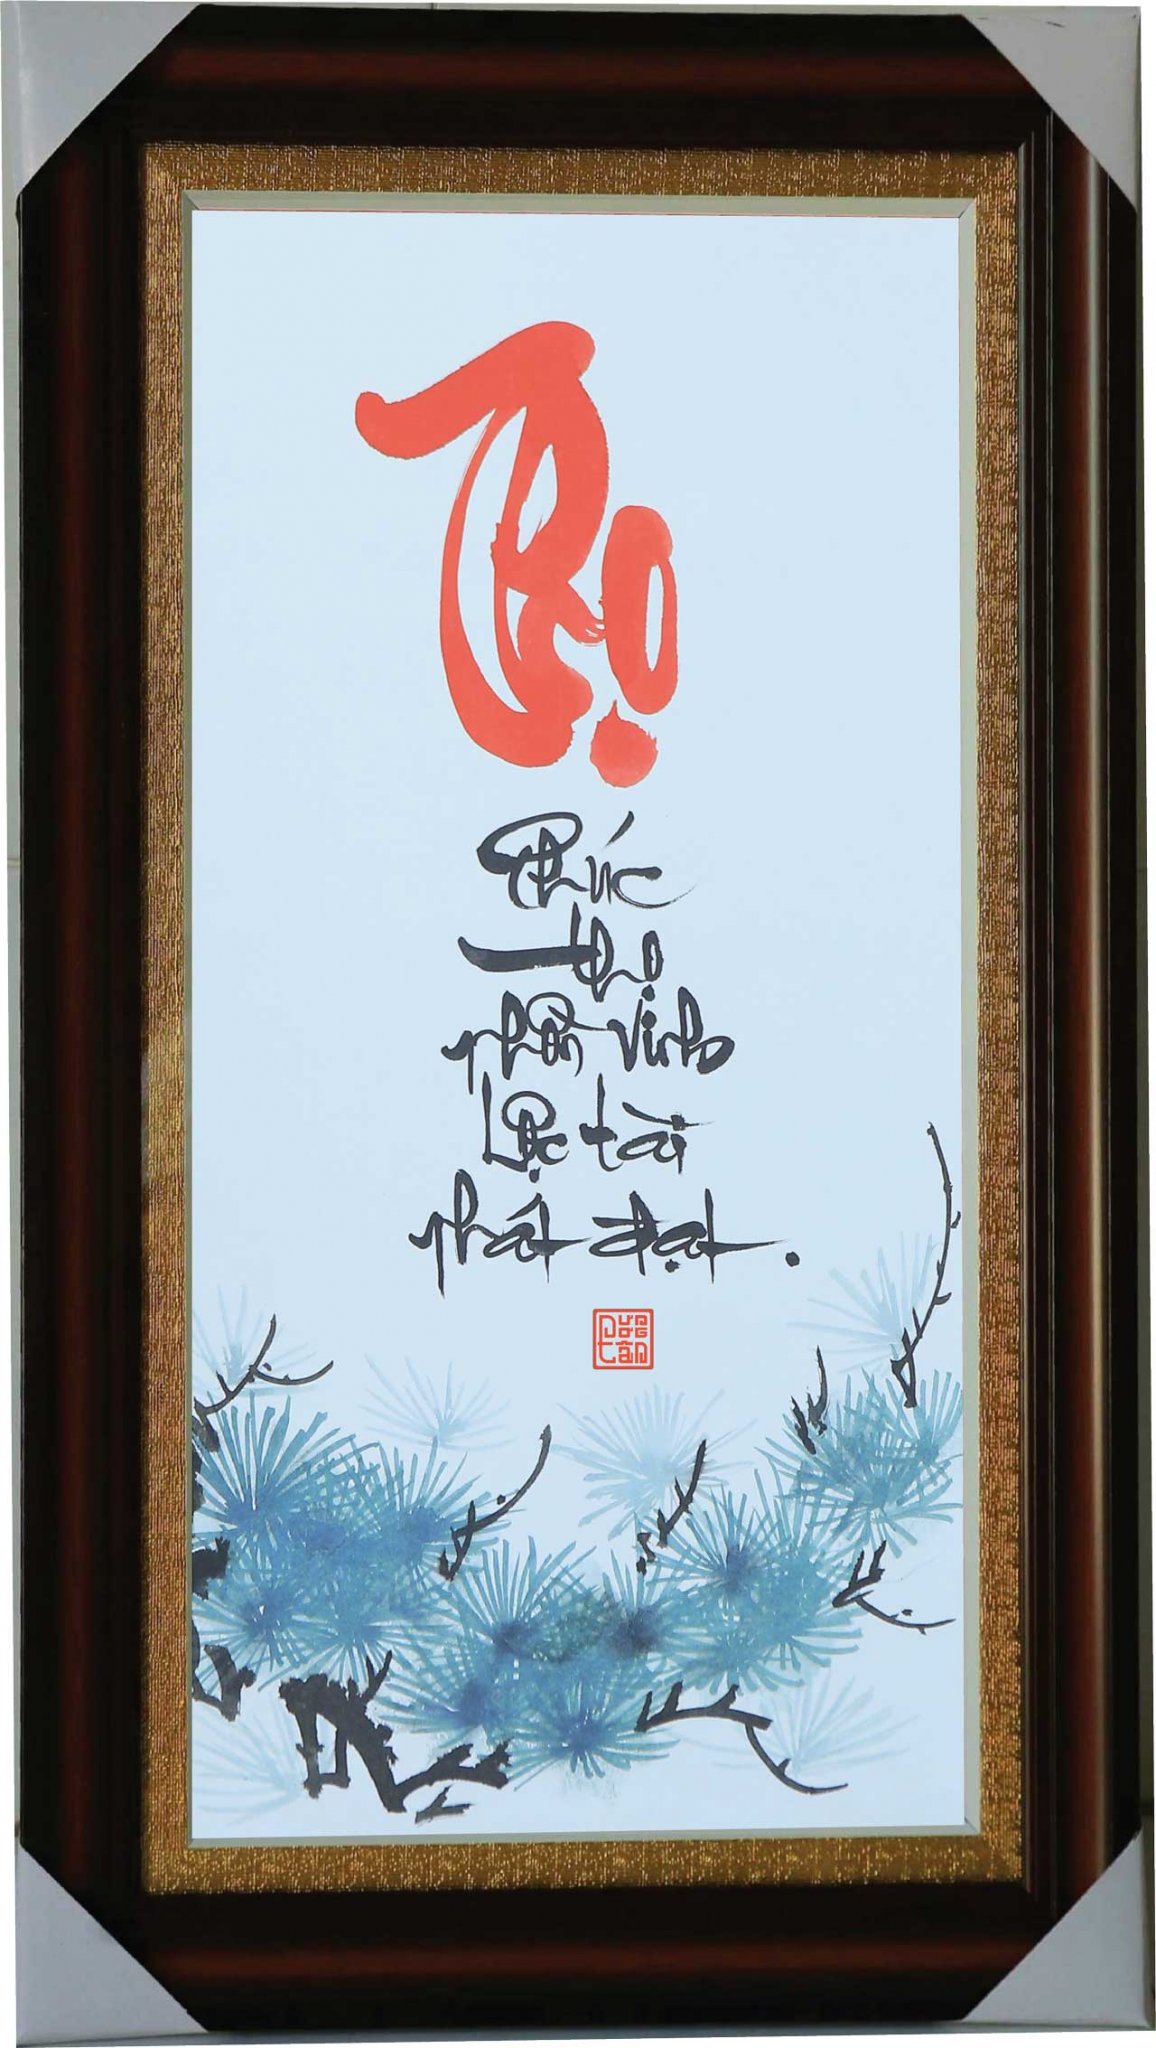 Thọ
Phúc
thọ
nhân vinh
Lộc tài
phát đạt.
Đức
tân